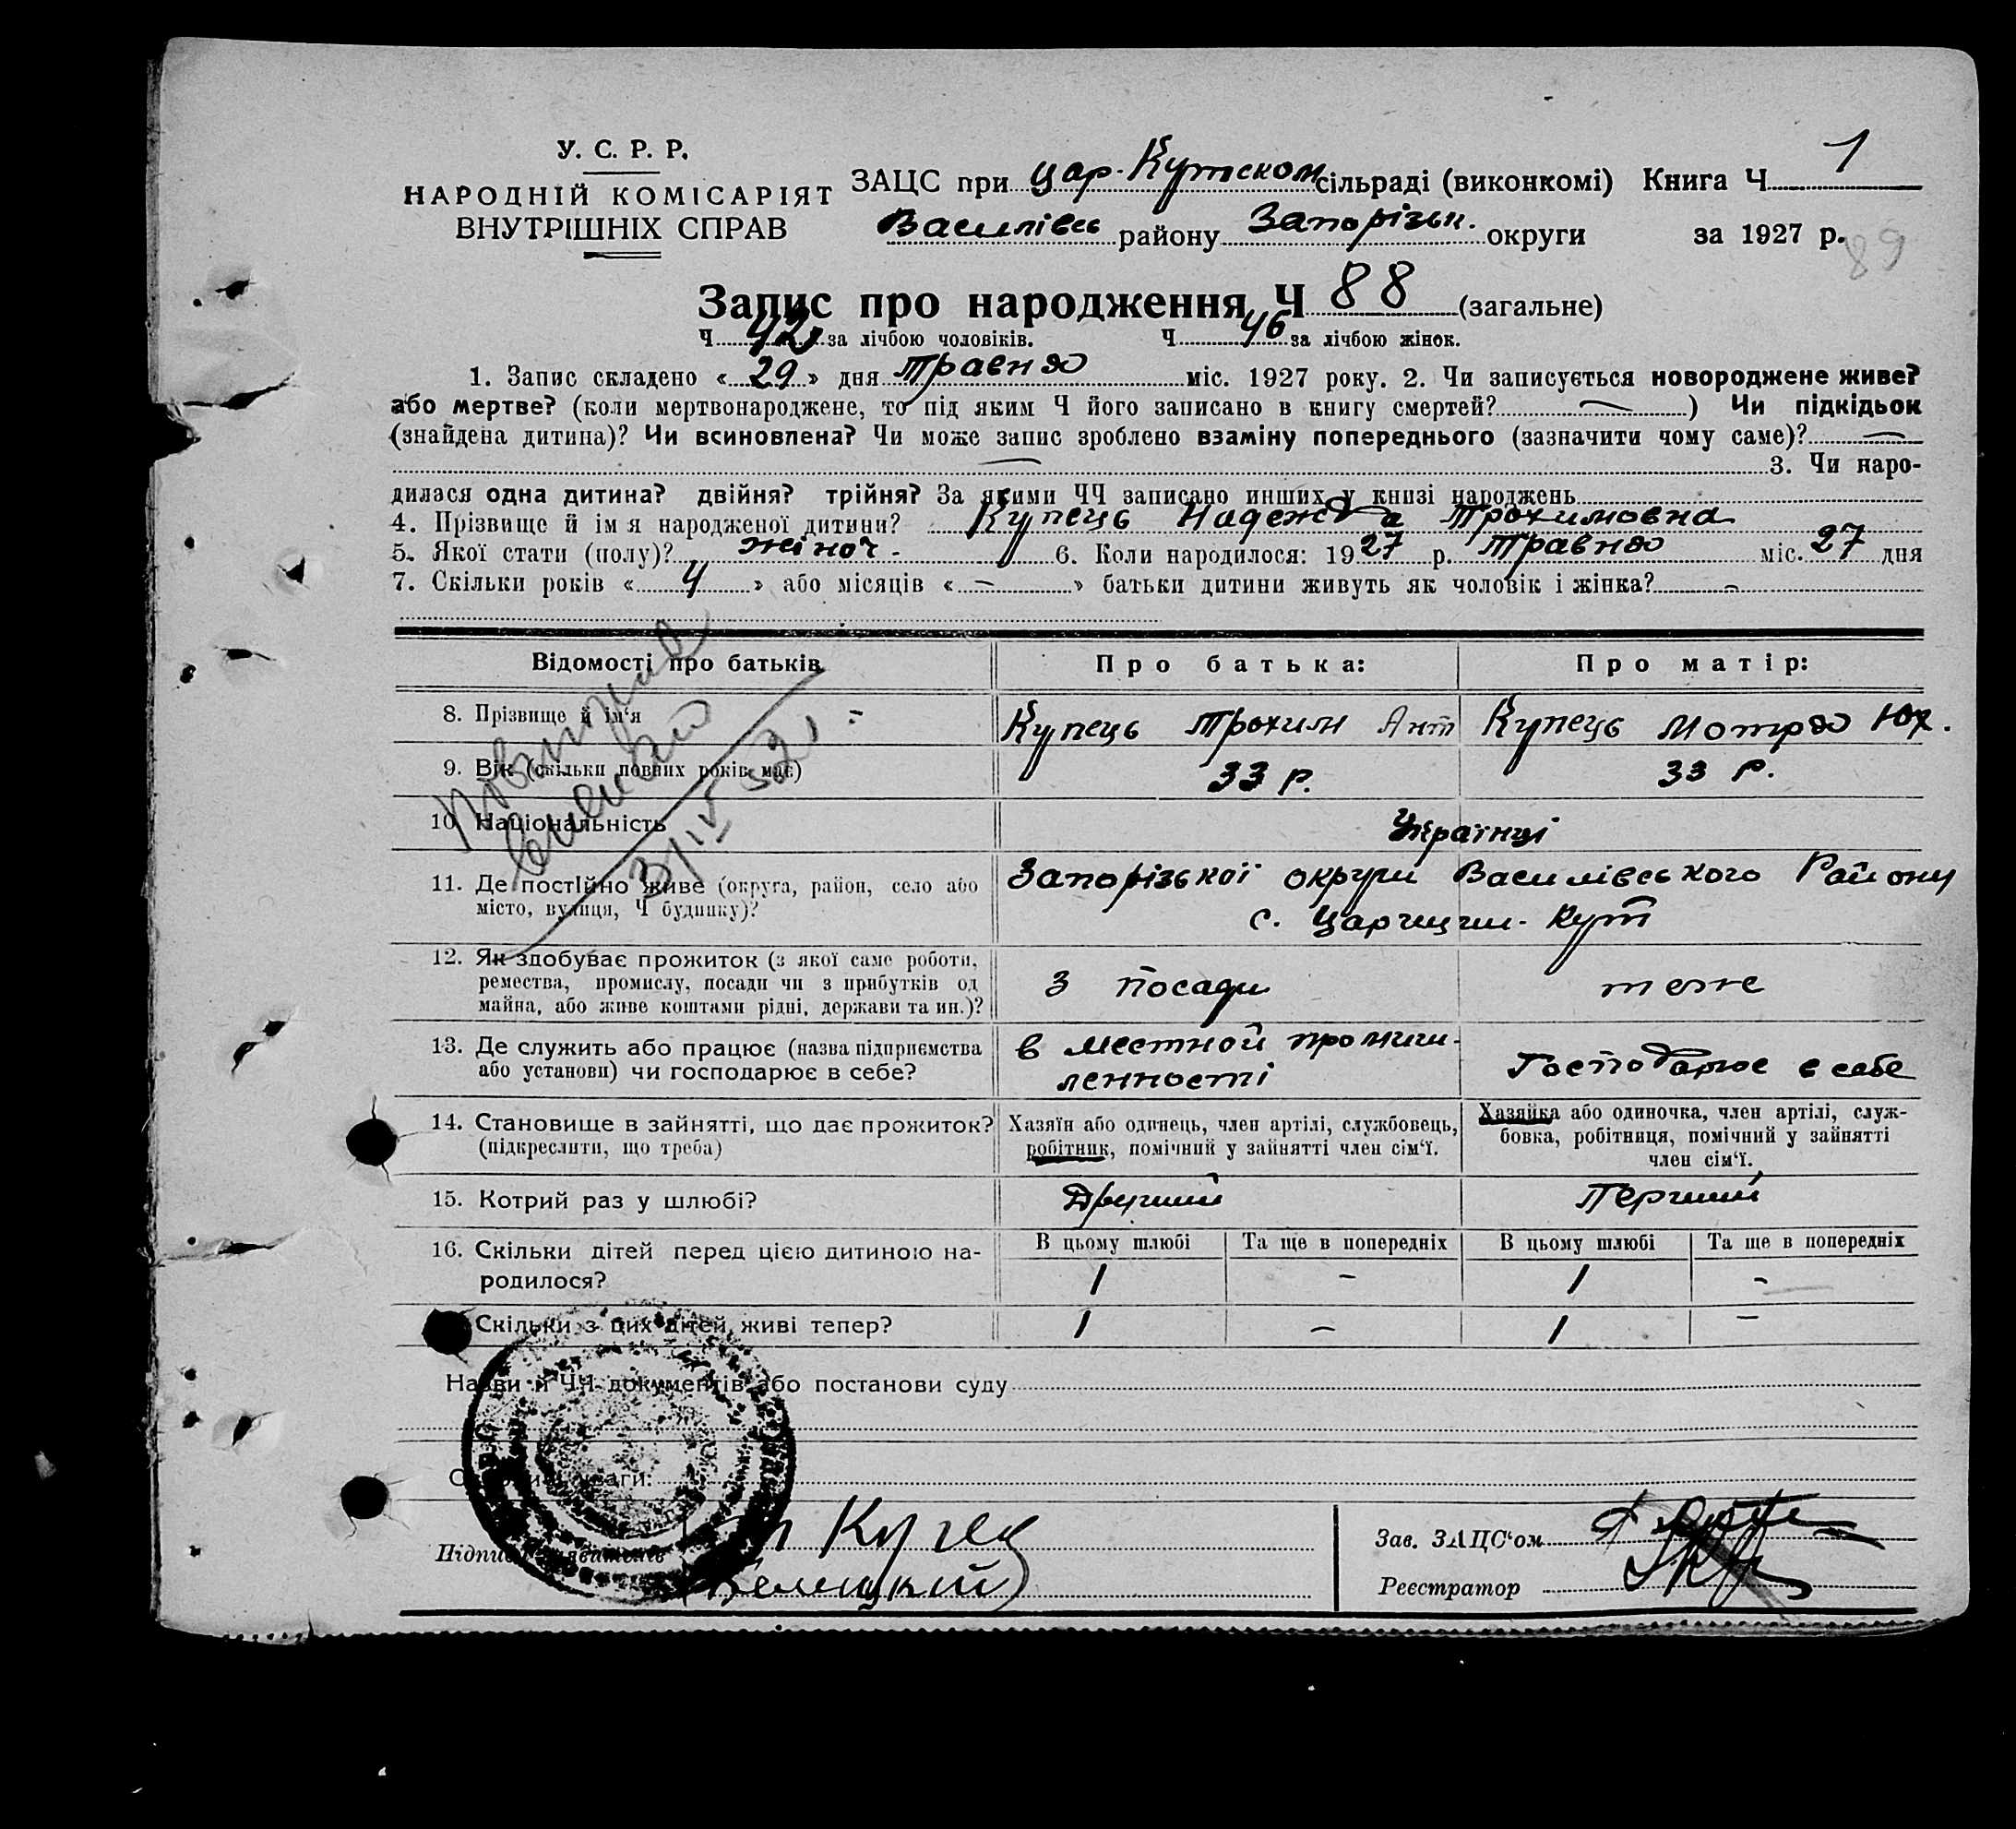 У. С. Р. Р.
НАРОДНІЙ КОМІСАРІЯТ
ВНУТРІШНІХ СПРАВ
ЗАЦС при цар-Кутском сільраді (виконкомі) Книга Ч 1
Василівсь району Запорізьк. округи за 1927 р.
89
Запис про народження Ч 88 (загальне)
Ч 42 за лічбою чоловіків. Ч 46 за лічбою жінок.
1. Запис складено «29» дня травня міс. 1927 року. 2. Чи записується новороджене живе?
або мертве? (коли мертвонароджене, то під яким Ч його записано в книгу смертей? —) Чи підкідьок
(знайдена дитина)? Чи всиновлена? Чи може запис зроблено взаміну попереднього (зазначити чому саме)? —
— 3. Чи наро-
дилася одна дитина? двійня? трійня? За якими ЧЧ записано инших у книзі народжень
4. Прізвище й ім я народженої дитини? Купець Надежда Трохимовна
5. Якої стати (полу)? жіноч. 6. Коли народилося: 1927 р. травня міс. 27 дня
7. Скільки років «4» або місяців «–» батьки дитини живуть як чоловік і жінка? –
Відомості про батьків Про батька: Про матір:
8. Прізвище й ім‘я Купець Трохим Ант Купець Мотря Юх.
9. Вік (скільки повних років має) 33 р. 33 р.
10. Національність Українці
11. Де постійно живе (округа, район, село або Запорізької округи Василівського Району
місто, вулиця, Ч будинку)? с. Царицин-Кут
3/IV 32
12. Як здобуває прожиток (з якої саме роботи,
ремества, промислу, посади чи з прибутків од З посади теже
майна, або живе коштами рідні, держави та ин.)?
13. Де служить або працює (назва підприємства в местной промиш-
або установи) чи господарює в себе? ленності Господарює в себе
14. Становище в зайнятті, що дає прожиток? Хазяїн або одинець, член артілі, службовець, Хазяйка або одиночка, член артілі, служ-
(підкреслити, що треба) робітник, помічний у зайнятті член сім‘ї. бовка, робітниця, помічний у зайнятті
член сім‘ї.
15. Котрий раз у шлюбі? Другий Перший
16. Скільки дітей перед цією дитиною на- В цьому шлюбі Та ще в попередніх В цьому шлюбі Та ще в попередніх
родилося? 1 – 1 –
Скільки з цих дітей живі тепер? 1 – 1 –
Назви й ЧЧ документів або постанови суду
Зав. ЗАЦС‘ом
Реєстратор